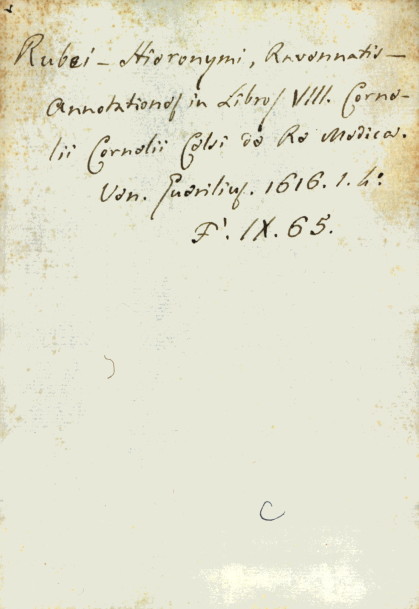 Rubei - Hieronymi, Ravennatis -
Annotationes in Libros VIII. Corne-
lii Cornelii Celsi de Re Medica.
Ven. Guerilius. 1616. 1. 4:
F'. IX. 65.
C